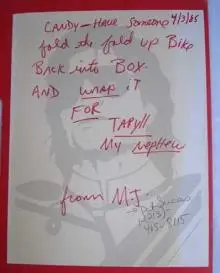 CANDY — HAVE Someone 4/3/85
fold the fold up Bike
BACK into BOX.
AND WRAP iT
FOR
TARYll
MY Nephew
from M.J.
(213)